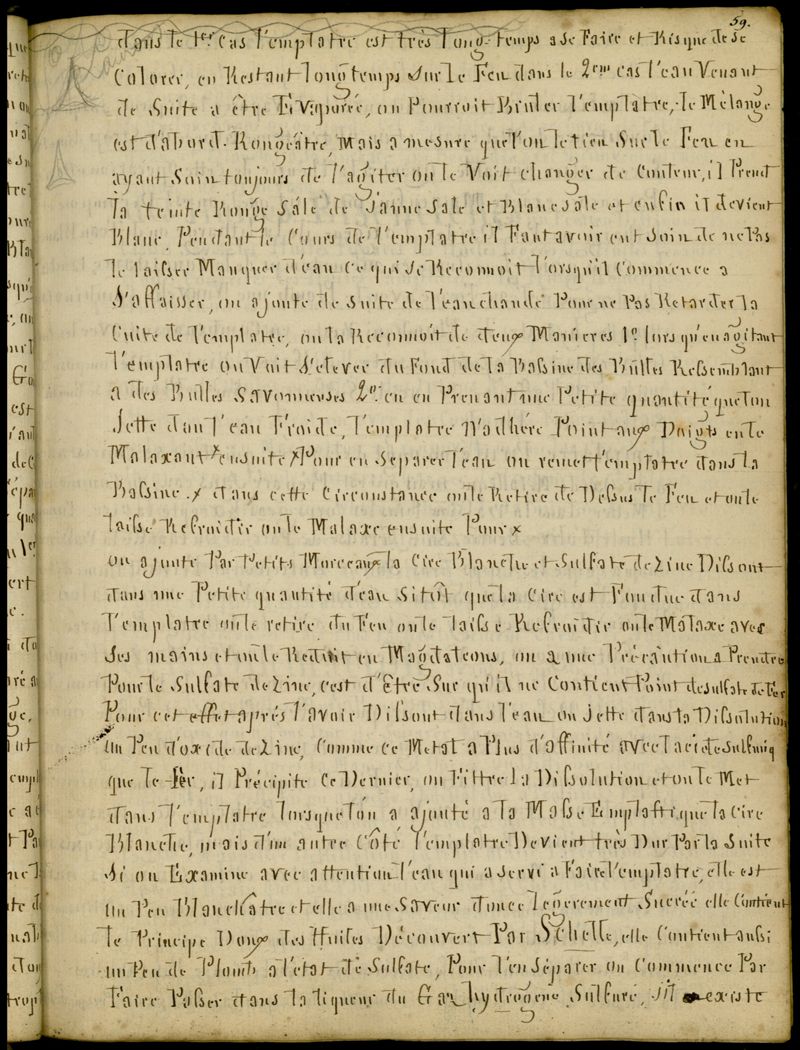 59.
dans le 1er Cas l'emplatre est très long-temps a se Faire et Risque de se
Colorer, en Restant longtemps sur le Feu dans le 2eme cas l'eau Venant
de Suite a être Evaporée, on Pourroit Bruler l'emplatre, le Mélange
est d'abord Rougeâtre, Mais a mesure que l'on le tien Sur le Feu en
ayant Soin toujours de l'agiter on le Voit changer de Couleur, il Prend
la teinte Rouge Sale de Jaune Sale et Blanc Sale et enfin il devient
Blanc, Pendant le Cours de l'emplatre il Faut avoir eut Soin de ne Pas
le laisser Manquer d'eau Ce qui se Reconnoit l'orsqu'il Commence a
S'affaisser, on ajoute de suite de l'eau chaude Pour ne Pas Retarder la
Cuite de l'emplatre, on la Reconnoit de deux Manieres 1o lors qu'en agitant
l'emplatre on Voit s'elever du Fond de la Bassine des Bulles Ressemblant
a des Bulles Savonneuses 2o en en Prenant une Petite quantité que l'on
Jette dans l'eau Froide, l'emplatre N'adhère Point aux Doigts en le
Malaxant x ensuite x Pour en Separer l'eau on remet l'emplatre dans la
Bassine . x dans cette Circonstance on le Retire de Dessus le Feu et on le
laisse Refroidir on le Malaxe ensuite Pour x
on ajoute Par Petits Morceaux la Cire Blanche et Sulfate de Zinc Dissout
dans une Petite quantité d'eau Sitôt que la Cire est Fondue dans
l'emplatre on le retire du Feu on le laisse Refroidir on le Malaxe avec
Ses mains et on le Reduit en Magdaleons, on a une Précaution a Prendre
Pour le Sulfate de Zinc, c'est d'Etre Sur qu'il ne Contient Point de sulfate de Fer
Pour cet effet après l'avoir Dissout dans l'eau on Jette dans la Dissolution
un Peu d'oxide de Zinc, Comme ce Metal a Plus d'affinité avec l'acide sulfuriq
que le Fer, il Précipite Ce Dernier, on Filtre la Dissolution et on le Met
dans l'emplatre lorsque l'on a ajouté a la Masse Emplastique la Cire
Blanche, mais d'un autre Côté l'emplatre Devient très Dur Par la Suite
Si on Examine avec attention l'eau qui a Servi a Faire l'emplatre, elle est
un Peu Blanchâtre et elle a une Saveur douce Legerement Sucrée elle Contient
le Principe Doux des Huiles Découvert Par Schelle, elle Contient aussi
un Peu de Plomb a l'etat de Sulfate, Pour l'en Séparer on Commence Par
Faire Passer dans la liqueur du Gaz hydrogene Sulfuré, S'il existe